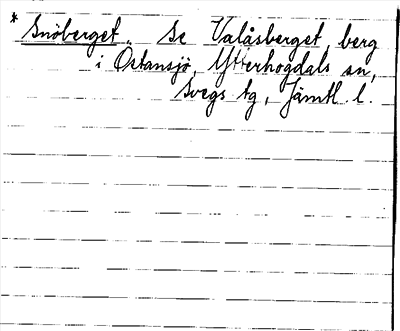 * Snöberget. Se Valåsberget berg
i Östansjö, Ytterhogdals sn,
Svegs tg, Jämtl. l.